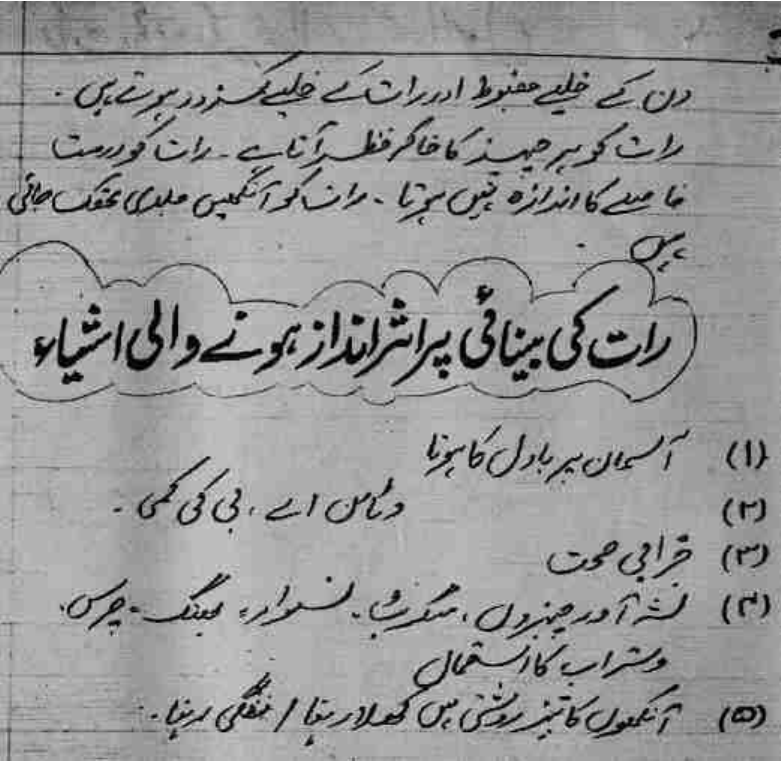 دن کے خلیے مضبوط اور رات کے خلیے کمزور ہوتے ہیں ۔
رات کو ہر چیز کا خاکہ نظر آتا ہے ۔ رات کو درست
فاصلے کا اندازہ نہیں ہوتا ۔ رات کو آنکھیں جلدی تھک جاتی
ہیں
رات کی بینائی پر اثر انداز ہونے والی اشیاء
(۱) آسمان پر بادل کا ہونا
(۲) وٹامن اے ، بی کی کمی ۔
(۳) خرابی صحت
(۴) نشہ آور چیزوں ، سگریٹ ، نسوار ، بھنگ ، چرس ،
و شراب کا استعمال
(۵) آنکھوں کا تیز روشنی میں کھلا رہنا / ننگی رہنا ۔